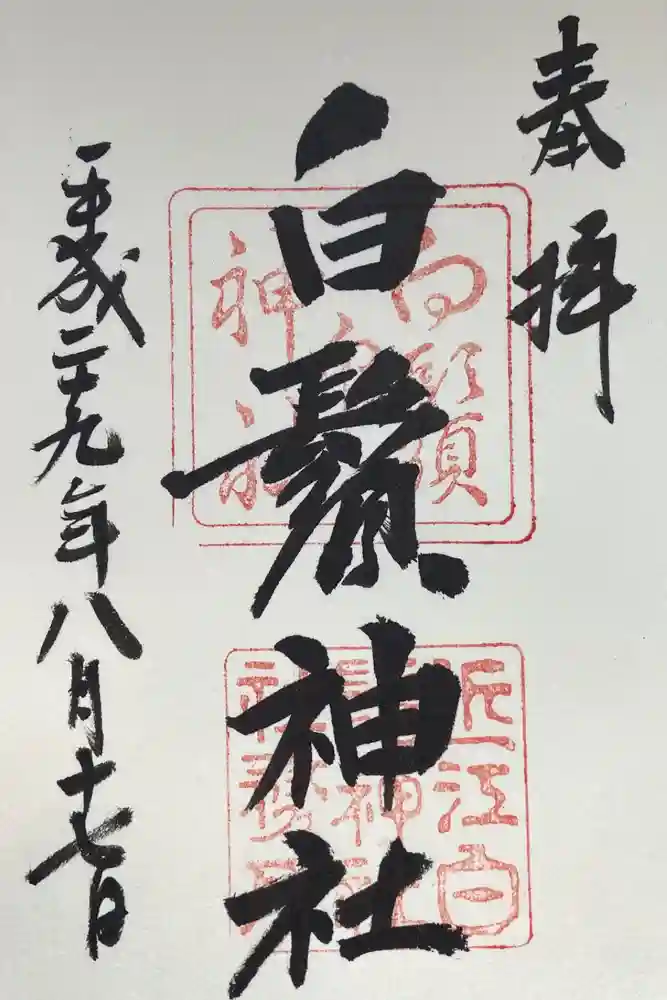 奉拝
白鬚神社
平成二十九年八月十七日
白鬚神社
近江白鬚神社社務所